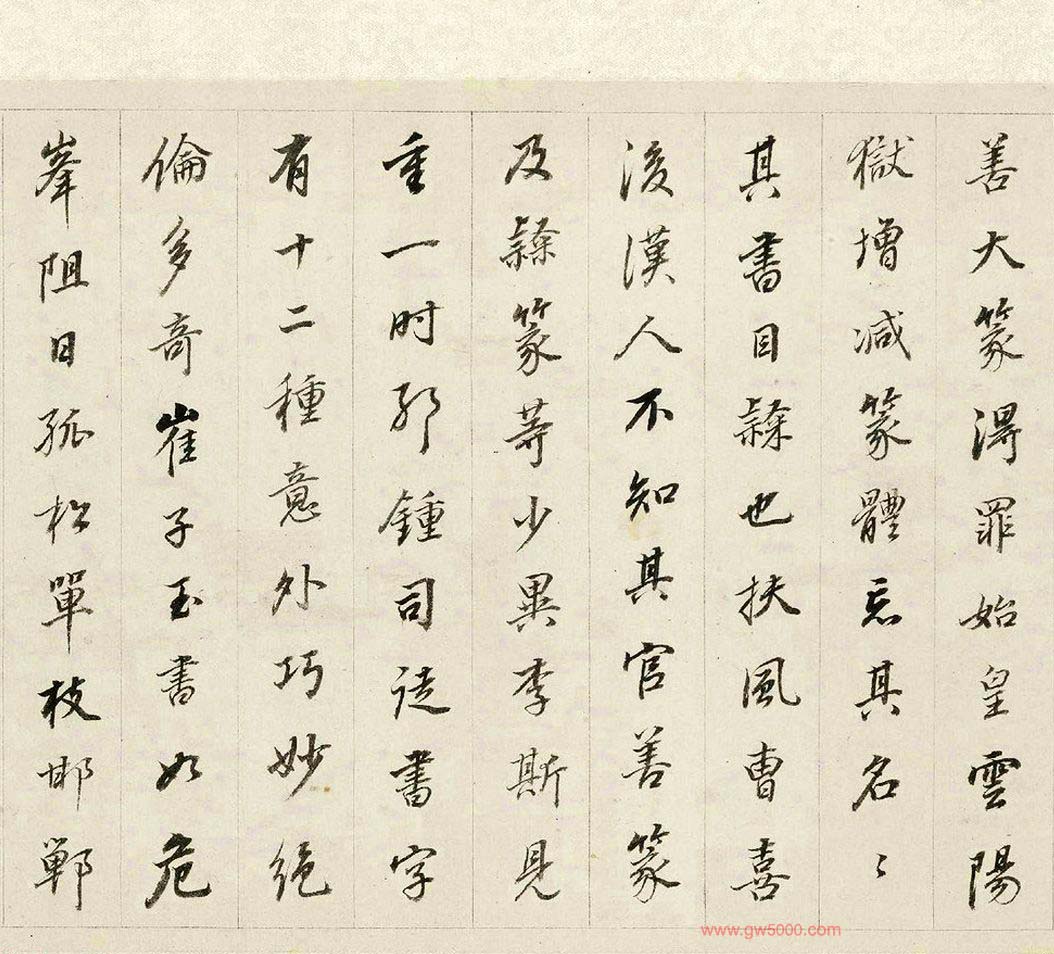 善大篆得罪始皇雲陽
獄增減篆體忘其名〻
其書目隸也扶風曹喜
後漢人不知其官善篆
及隸篆等少異李斯見
重一时鍾司徒書字
有十二種意外巧妙絕
倫多奇崔子玉書如危
峯阻日孤松單枝邯鄲
www.gw5000.com